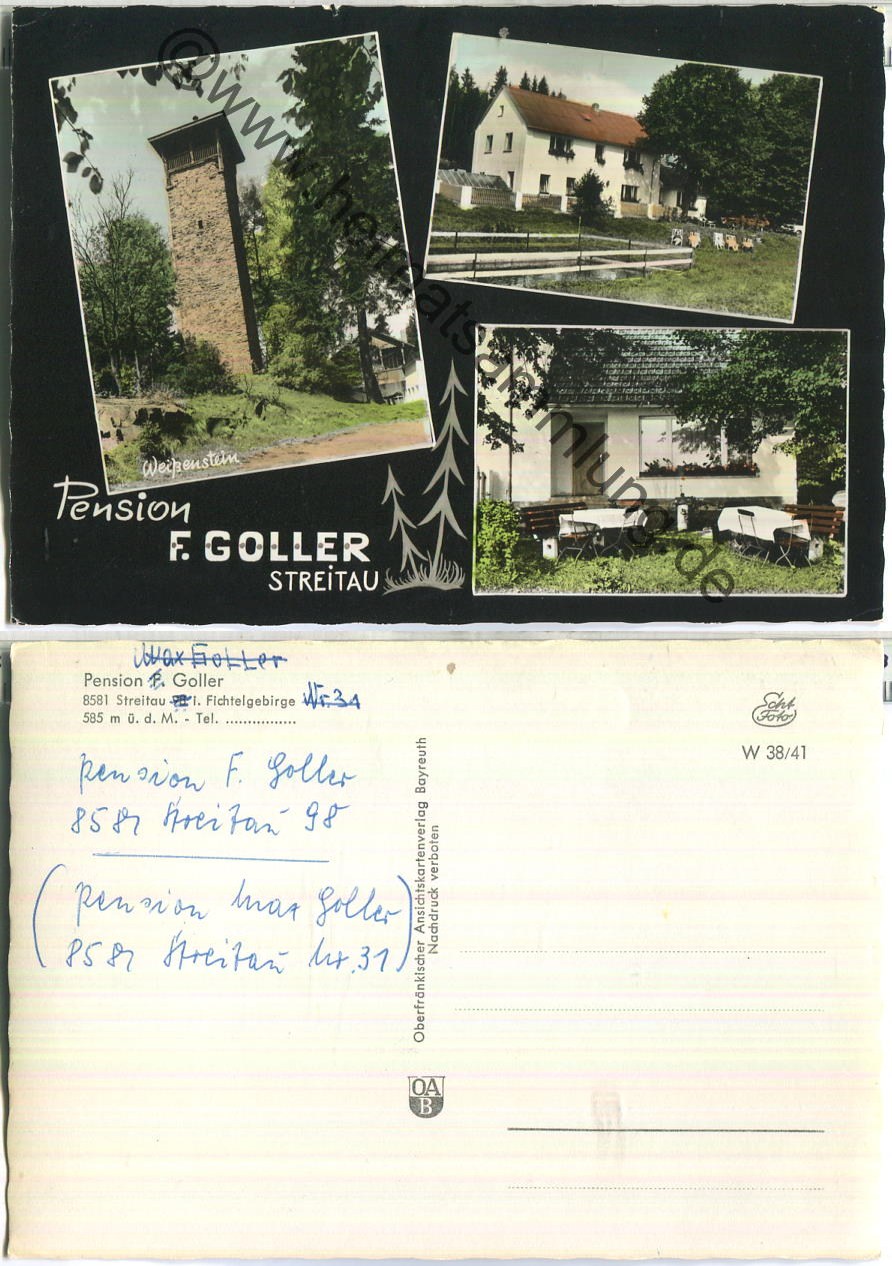 ©www.heimatsammlung.de
Weißenstein
Pension
F. GOLLER
STREITAU
Max Goller
Pension F. Goller
8581 Streitau i. Fichtelgebirge Nr. 31
585 m ü. d. M. - Tel. ................
Echt
Foto
W 38/41
pension F. Goller
8581 Streitau 98
(pension Max Goller
8581 Streitau Nr. 31)
Oberfränkischer Ansichtskartenverlag Bayreuth
Nachdruck verboten
OA
B